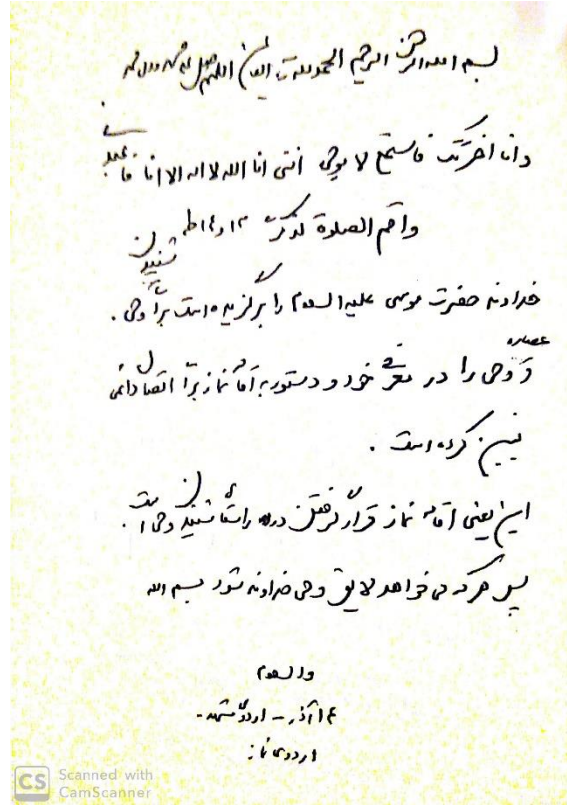 بسم الله الرحمن الرحیم الحمدلله رب العالمین اللهم صل علی محمد و آل محمد
وانا اخترتک فاستمع لما یوحی اننی انا الله لا اله الا انا فاعبدنی
واقم الصلوة لذکری ۱۳ و ۱۴ طه
خداوند حضرت موسی علیه السلام را برگزیده است برای شنیدن وحی.
و عصاره وحی را در معرفی خود و دستور به اقامه نماز برای اتصال دائمی
تبیین کرده است.
این یعنی اقامه نماز قرار گرفتن در راستای شنیدن وحی است.
پس هر که می خواهد لایق وحی خداوند شود بسم الله
والسلام
۱۴ آذر - اردوی مشهد -
اردوی نماز
CS Scanned with
CamScanner